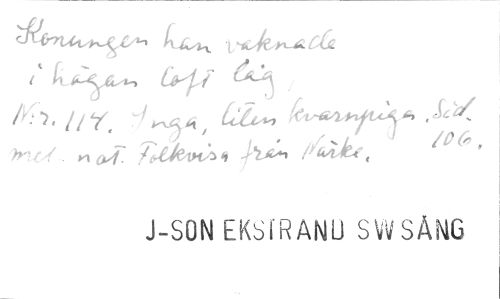 Konungen han vaknade
i högan loft låg,
N:r. 114. Inga, liten kvarnpiga. Sid.
mel. not. Folkvisa från Närke. 106.
J-SON EKSTRAND SWSÅNG